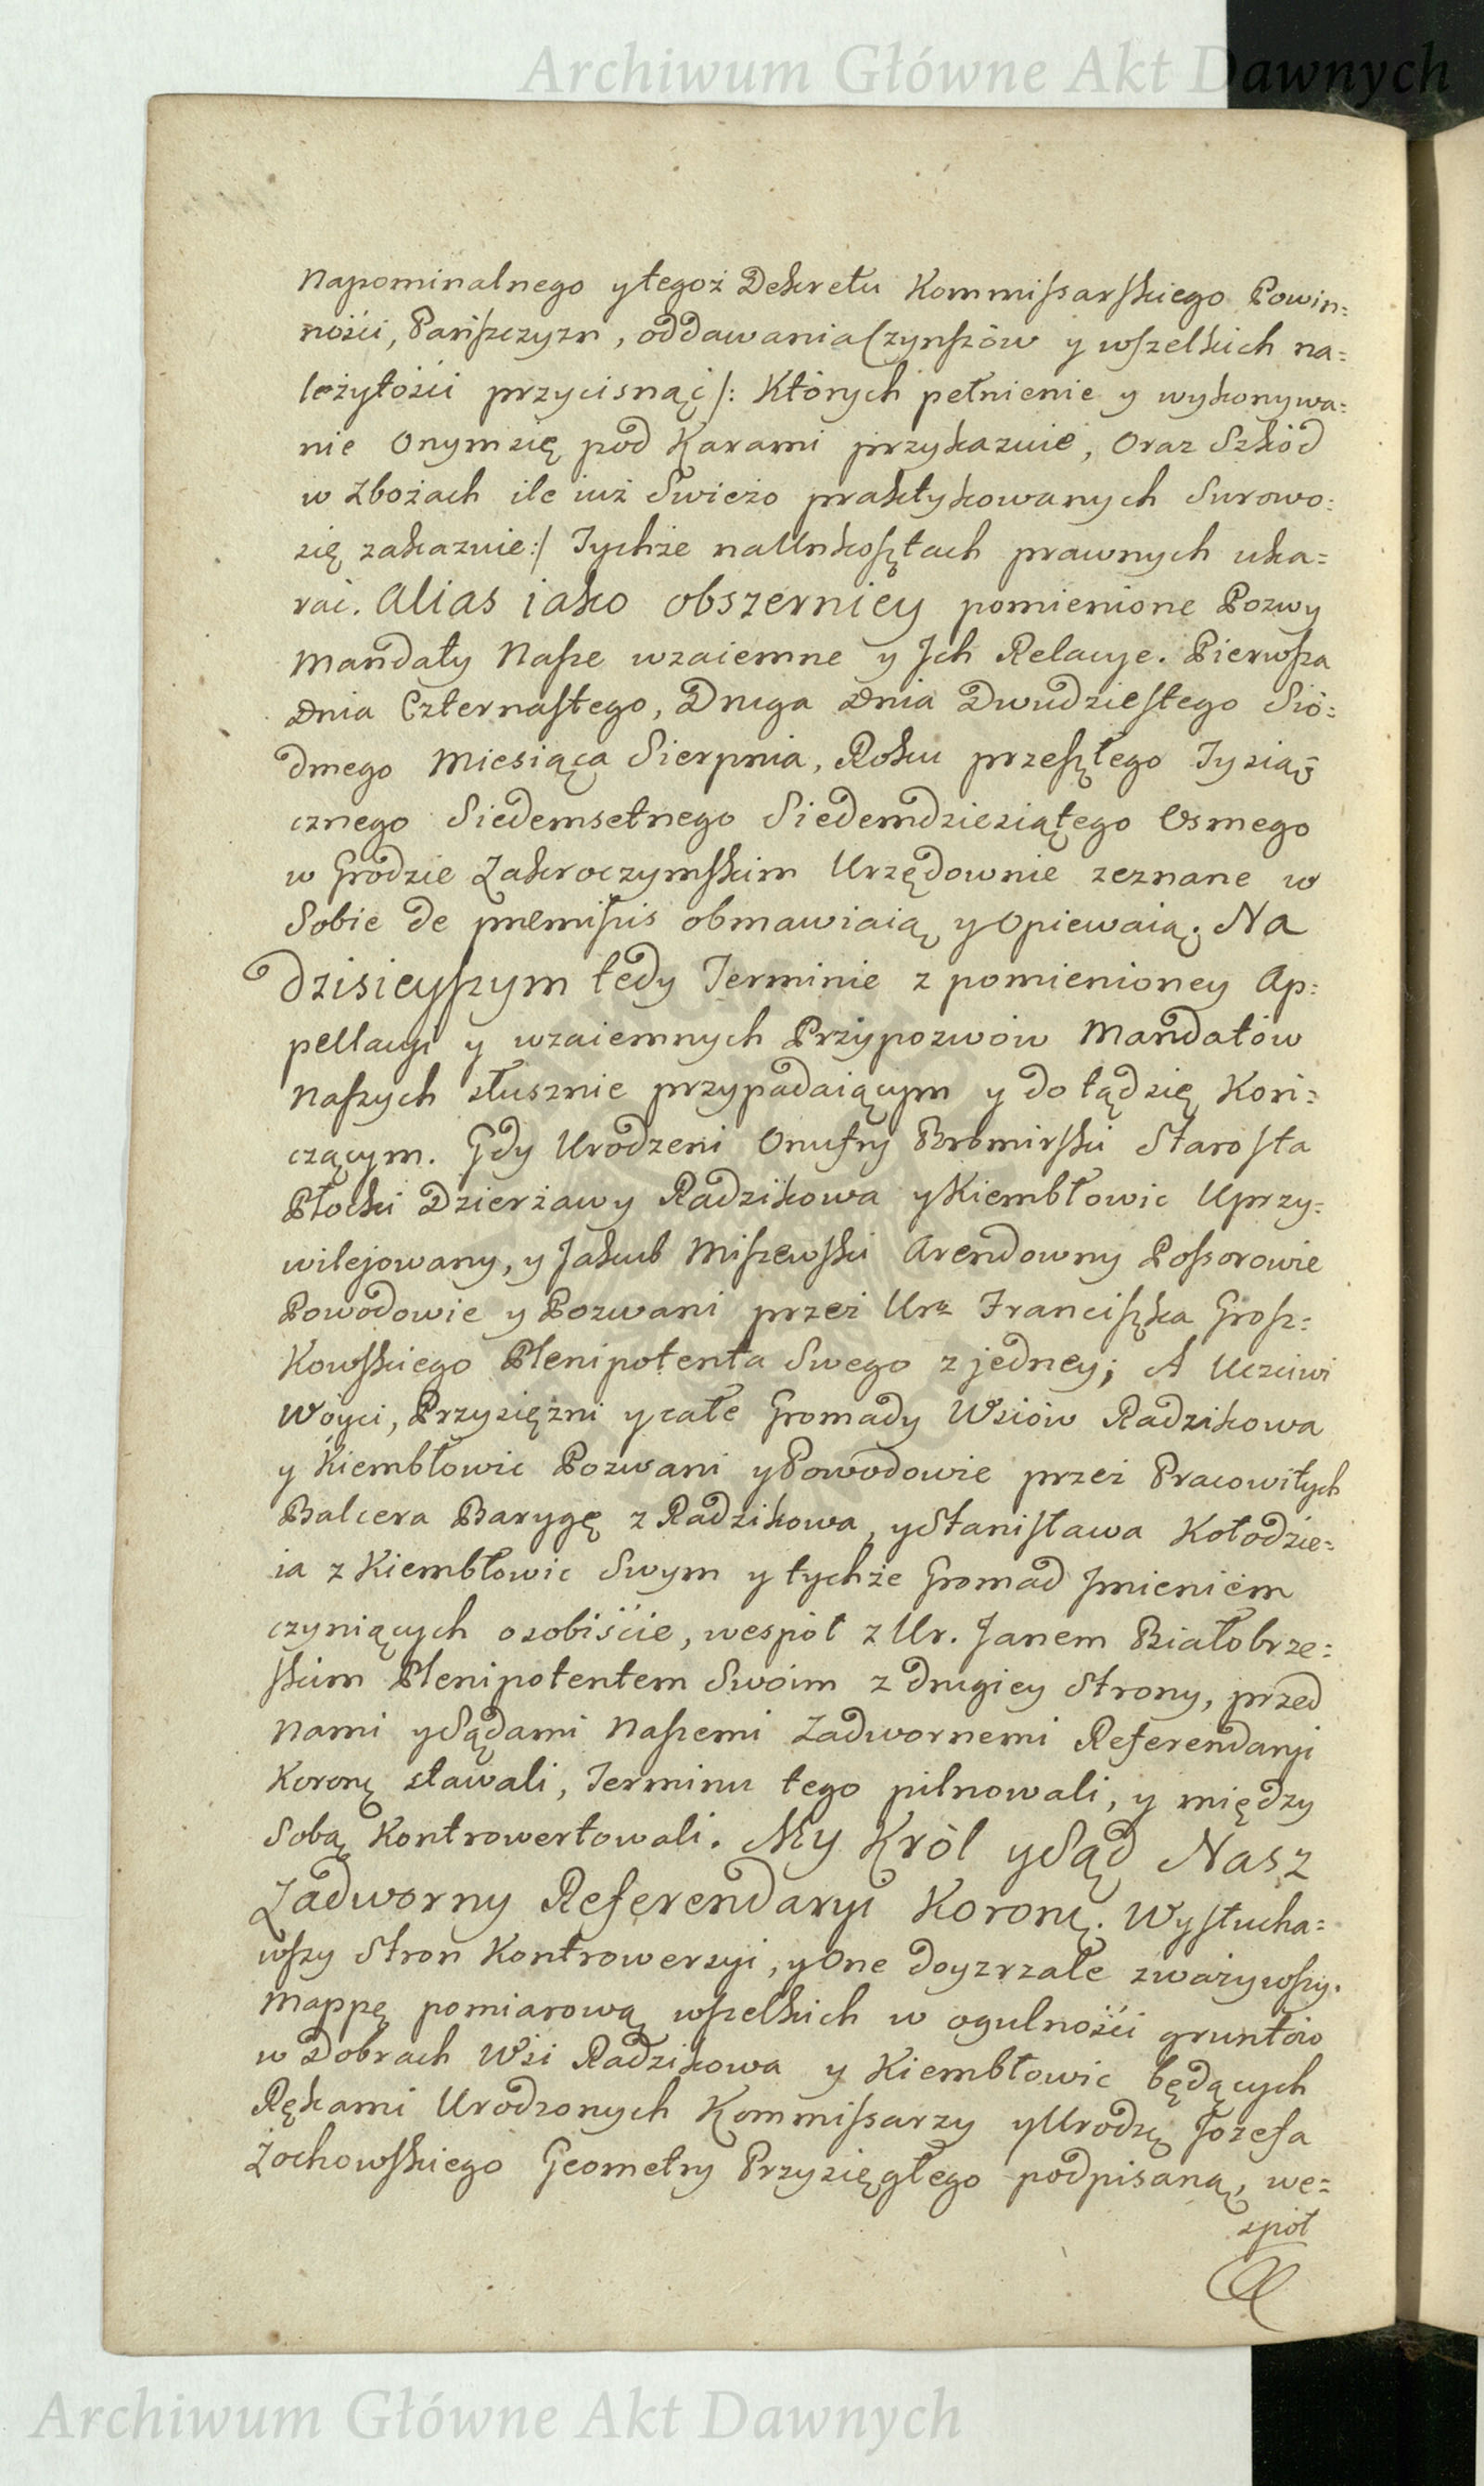 Archiwum Główne Akt Dawnych
Napominalnego y tegoż Dekretu Kommissarskiego Powin=
ności, Pańszczyzn, oddawania Czynszów y wszelkich na=
leżytości przycisnąć /: Których pełnienie y wykonywa=
nie Onym się pod Karami przykazuie, Oraz Szkód
w Zbożach ile iuż Swieżo praktykowanych Surowo=
się zakazuie :/ Tychże na Unkosztach prawnych uka=
rać. Alias iako obszerniey pomienione Pozwy
Mandaty Nasze wzaiemne y Jch Relacye. Pierwsza
Dnia Czternastego, Druga Dnia Dwudziestego Sió=
dmego Miesiąca Sierpnia, Roku przeszłego Tysiąc
cznego Siedemsetnego Siedemdziesiątego Osmego
w Grodzie Zakroczymskim Urzędownie zeznane w
Sobie de præmissis obmawiaią y Opiewaią. Na
dzisieyszym tedy Terminie z pomienioney Ap=
pellacyi y wzaiemnych Przypozwów Mandatów
Naszych słusznie przypadaiącym y do tąd się Koń=
czącym. Gdy Urodzeni Onufry Bromirski Starosta
Płocki Dzierżawy Radzikowa y Kiembłowic Uprzy=
wilejowany, y Jakub Miszewski Arendowny Possorowie
Powodowie y Pozwani przez Urz Franciszka Grosz=
Kowskiego Plenipotenta Swego z jedney; A Uczciwi
Woyci, Przysiężni y całe Gromady Wsiów Radzikowa
y Kiembłowic Pozwani y Powodowie przez Pracowitych
Balcera Barygę z Radzikowa, y Stanisława Kołodzie=
ia z Kiembłowic Swym y tychże Gromad Jmieniem
czyniących osobiście, wespół z Ur. Janem Białobrze=
skim Plenipotentem Swoim z drugiey Strony, przed
Nami y Sądami Naszemi Zadwornemi Referendaryi
Koronę stawali, Terminu tego pilnowali, y między
Sobą Kontrowertowali. My Król y Sąd Nasz
Zadworny Referendaryi Koronę. Wysłucha=
wszy Stron Kontrowersyi, y One doyzrzale zważywszy.
Mappę pomiarową wszelkich w ogulności gruntów
w Dobrach Wsi Radzikowa y Kiembłowic będących
Rękami Urodzonych Kommissarzy y Urodzę Jozefa
Żochowskiego Geometry Przysięgłego podpisaną, we=
spół
Archiwum Główne Akt Dawnych